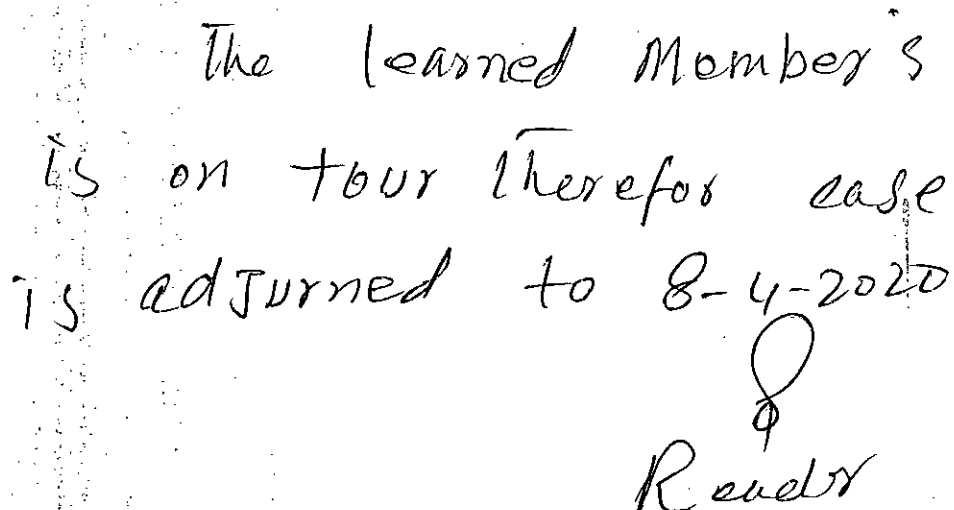 The learned Member's
is on tour therefor case
is adjurned to 8-4-2020
Reader